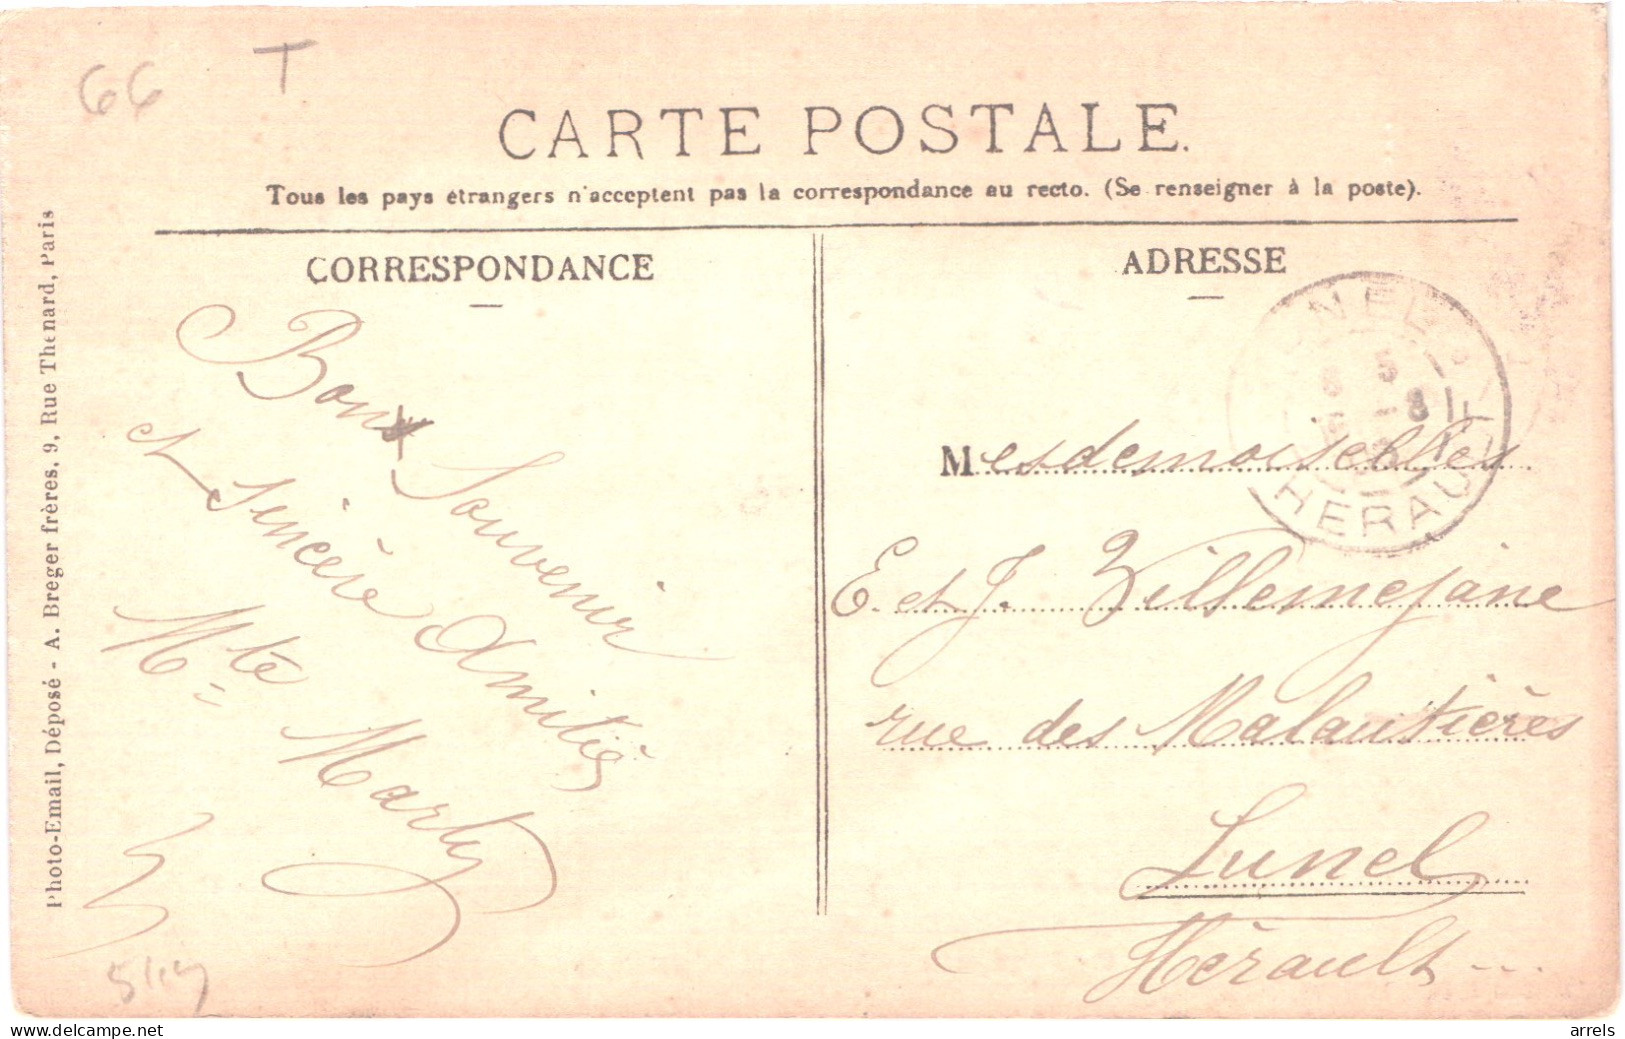 66 T
CARTE POSTALE.
Tous les pays étrangers n'acceptent pas la correspondance au recto. (Se renseigner à la poste).
CORRESPONDANCE
Bon Souvenir
et Sincère Amitiés
Mte Marty
ADRESSE
Mesdemoiselles
E. et J. Villemejane
rue des Malautières
Lunel
Hérault
HERAULT
Photo-Email, Déposé - A. Breger frères, 9, Rue Thenard, Paris
arrels